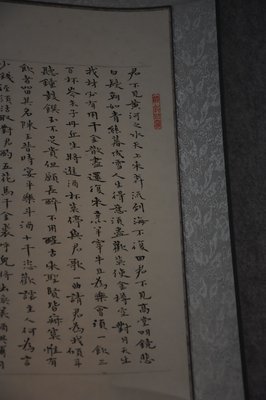 君不見黃河之水天上來奔流到海不復回君不見高堂明鏡悲
白髮朝如青絲暮成雪人生得意須盡歡莫使金樽空對月天生
我材必有用千金散盡還復來烹羊宰牛且為樂會須一飲三
百杯岑夫子丹丘生將進酒杯莫停與君歌一曲請君為我傾耳
聽鐘鼓饌玉不足貴但願長醉不用醒古來聖賢皆寂寞惟有
飲者留其名陳王昔時宴平樂斗酒十千恣歡謔主人何為言
少錢徑須沽取對君酌五花馬千金裘呼兒將出換美酒